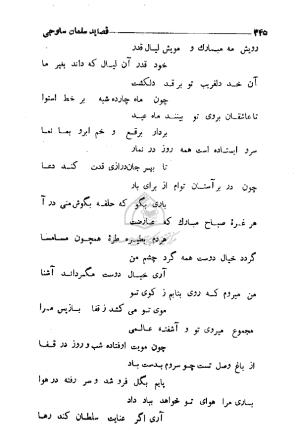 ۳۴۵ قصاید سلمان ساوجی
رویش مه مبارك و مویش لیال قدر
خود قدر آن لیال که داند بغیر ما
آن خد دلفریب تو بر قد دلکشت
چون ماه چارده شبه بر خط استوا
تا عاشقان بروی تو بینند ماه عید
بردار برقع و خم ابرو بما نما
سرو ایستاده است همه روز در نماز
تا بهر جان درازی قدت کند دعا
چون در بر آستان توام از برای باد
باری بگو که حلقه بگوش منی در آ
هر غرهٔ صباح مبارك که
هردم بطیره طرهٔ همچون مسامسا
گردد خیال دوست همه گرد چشم من
آری خیال دوست مگرداند آشنا
من میروم که روی بتابم ز کوی تو
موی تو می کشد ز قفا بازپس مرا
مجموع میروی تو و آشفته عالمی
چون مویت اوفتاده شب و روز در قفا
از باغ وصل تست چو سروم بدست باد
پایم بگل فرو شد و سر رفته در هوا
باری مرا هوای تو خواهد بباد داد
آری اگر عنایت سلطان کند رها